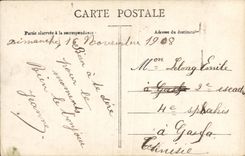 CARTE POSTALE
Partie réservée à la correspondance
Adresse du destinataire
Dimanche 15 Novembre 1908
Rien à te dire
pour le
moment
le bonjour
Bien
Jeanne
Mon Pelong Emile
à Gafsa 2e escad
4e spahis
à Gafsa
Tunisie